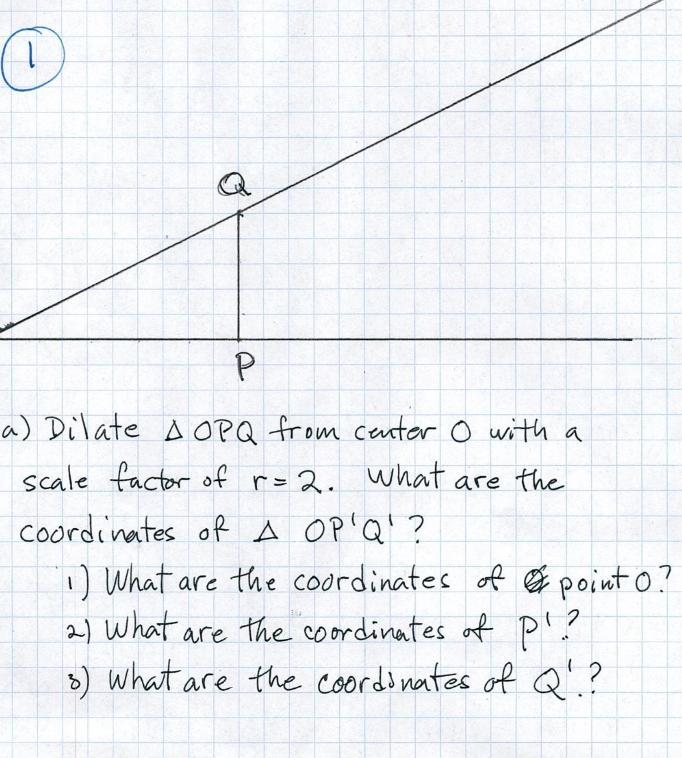 1
Q
P
a) Dilate △ OPQ from center O with a
scale factor of r = 2. What are the
coordinates of △ OP'Q' ?
1) What are the coordinates of point O?
2) What are the coordinates of P'?
3) What are the coordinates of Q'?